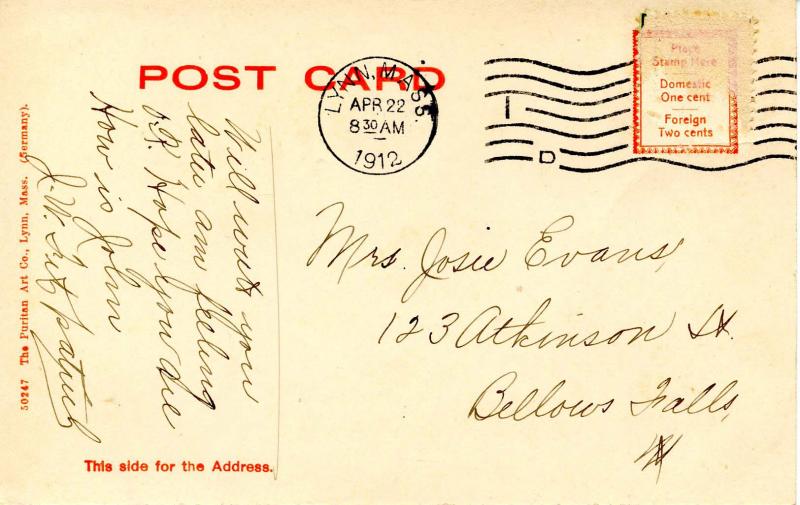 POST CARD
LYNN, MASS.
APR 22
8 30 AM
1912
D
Place
Stamp Here
Domestic
One cent
Foreign
Two cents
Will write you
later am feeling
O.K. Hope you are
How is John
J. W. Fitzpatrick
Mrs. Josie Evans,
123 Atkinson St.
Bellows Falls,
50247 The Puritan Art Co., Lynn, Mass. (Germany).
This side for the Address.